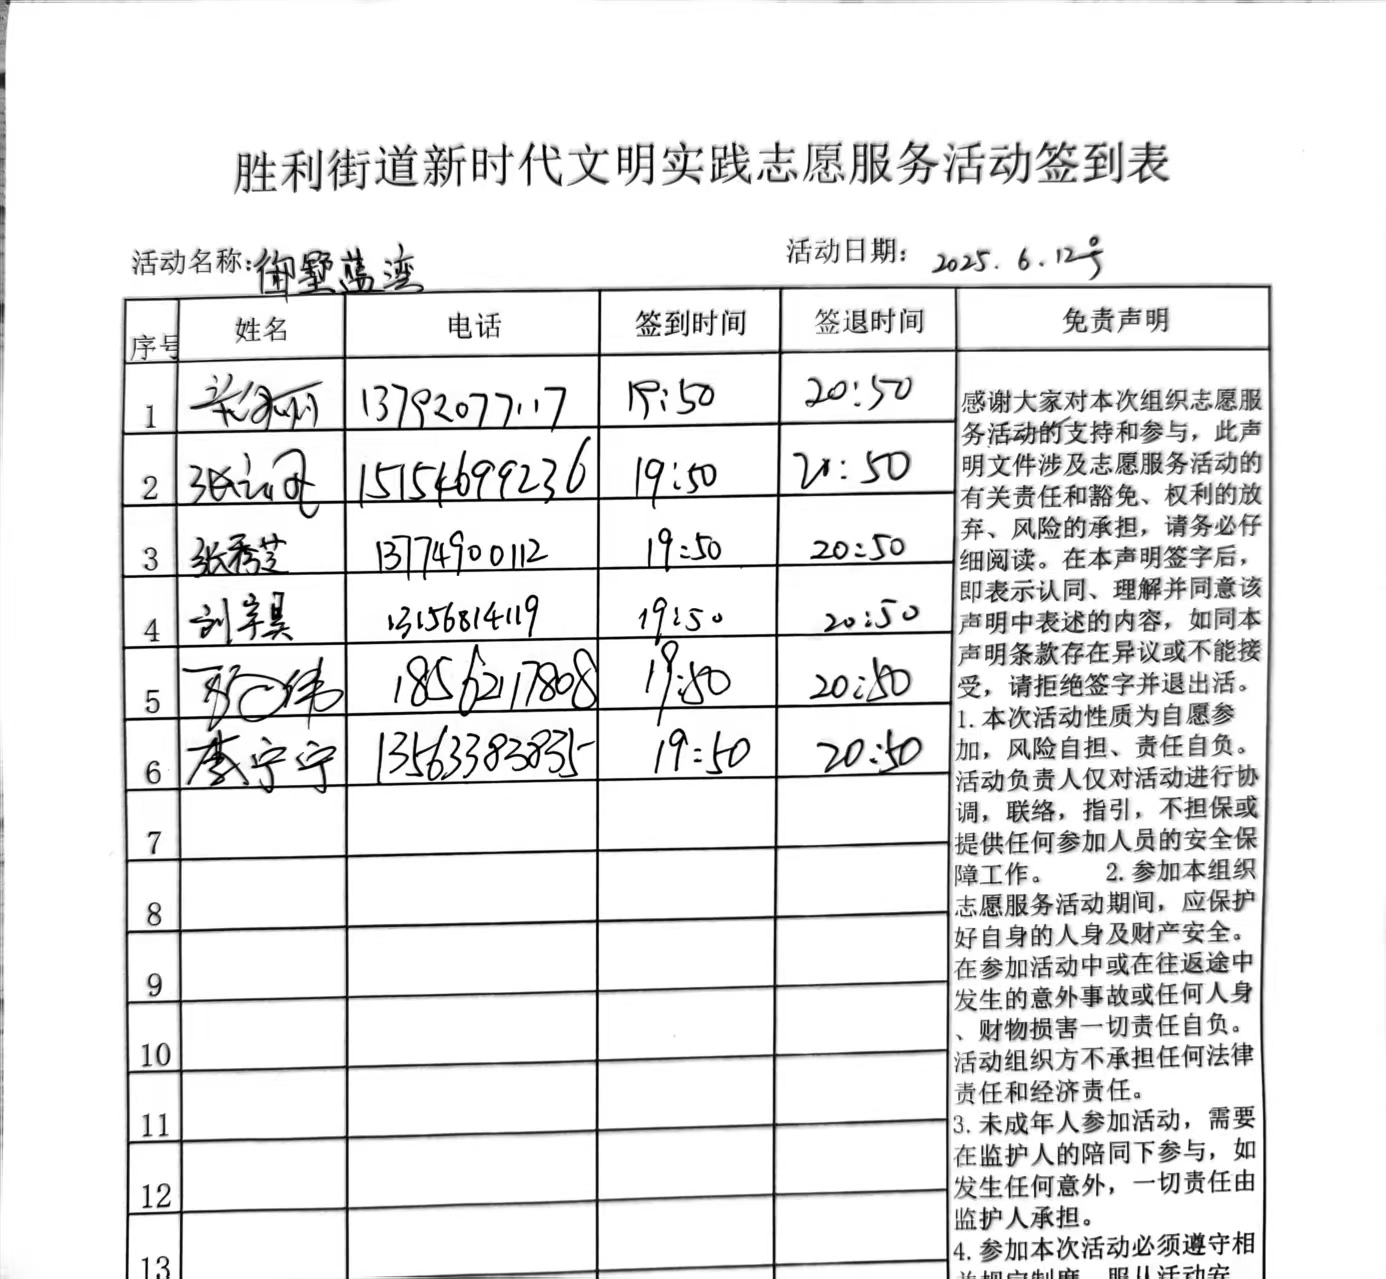 胜利街道新时代文明实践志愿服务活动签到表
活动名称:御墅蓝湾 活动日期: 2025.6.12号
序号 姓名 电话 签到时间 签退时间 免责声明
1 13792077117 19:50 20:50
2 张 15154699236 19:50 20:50
3 张秀芝 13774900112 19:50 20:50
4 刘宇昊 13156814119 19:50 20:50
5 伟 18562117808 19:50 20:50
6 李宁宁 13563383835 19:50 20:50
7
8
9
10
11
12
13
感谢大家对本次组织志愿服
务活动的支持和参与，此声
明文件涉及志愿服务活动的
有关责任和豁免、权利的放
弃、风险的承担，请务必仔
细阅读。在本声明签字后，
即表示认同、理解并同意该
声明中表述的内容，如同本
声明条款存在异议或不能接
受，请拒绝签字并退出活。
1.本次活动性质为自愿参
加，风险自担、责任自负。
活动负责人仅对活动进行协
调，联络，指引，不担保或
提供任何参加人员的安全保
障工作。 2.参加本组织
志愿服务活动期间，应保护
好自身的人身及财产安全。
在参加活动中或在往返途中
发生的意外事故或任何人身
、财物损害一切责任自负。
活动组织方不承担任何法律
责任和经济责任。
3.未成年人参加活动，需要
在监护人的陪同下参与，如
发生任何意外，一切责任由
监护人承担。
4.参加本次活动必须遵守相
关规定制度，服从活动安